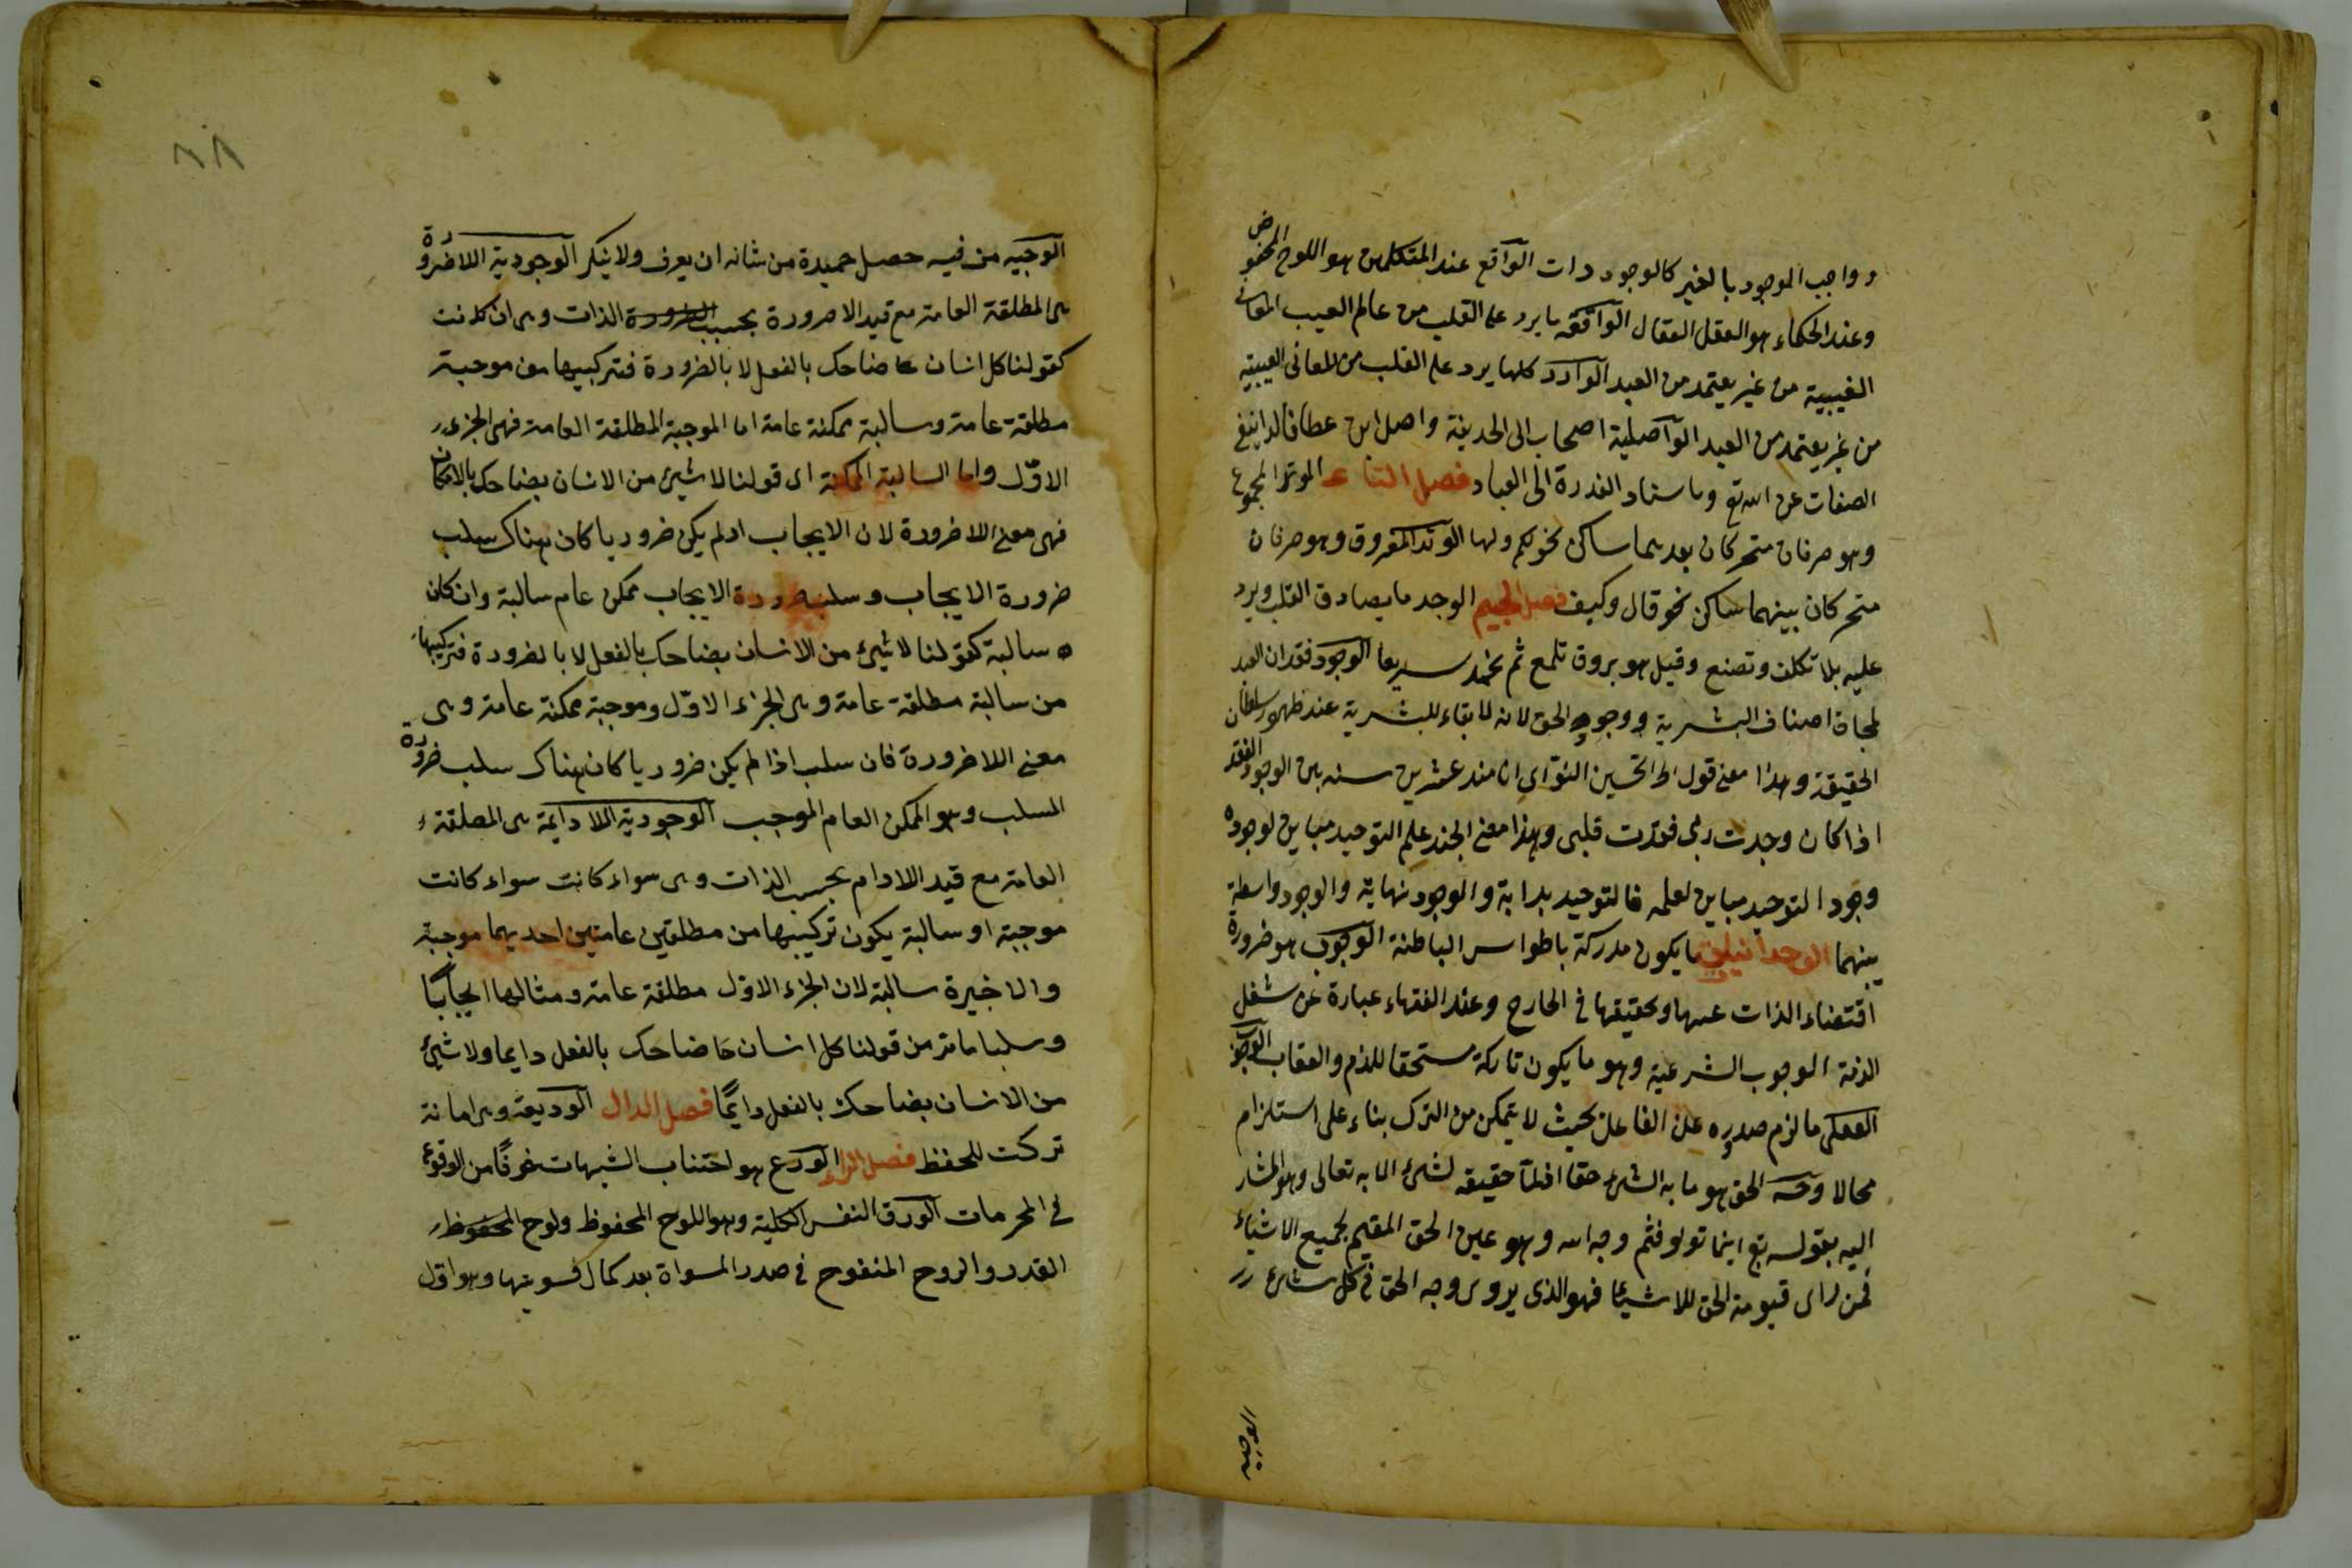 وواجب الموجود بالغير كالوجود دات الواقع عند المتكلمين هو اللوح المحفوض
وعند الحكماء هو العقل الفعال الواقعة ما يرد على القلب من عالم الغيب
الغيبية من غير يعتمد من العبد الوارد كلها يرد على القلب من المعانى الغيبية
من غير يعتمد من العبد الواصلية اصحاب الى الحديفة واصل ابن عطا قالوا بنفى
الصفات عن الله تع وباسناد القدرة الى العباد فصل التاء الوتد المجموع
وهو حرفان متحركان بعدهما ساكن نحو لكم ولها الوتد المفروق وهو حرفان
متحركان بينهما ساكن نحو قال وكيف فصل الجيم الوجد ما يصادق القلب ويرد
عليه بلا تكلف وتصنع وقيل هو بروق تلمع ثم تخمد سريعا الوجود فقدان العبد
اصناف البشرية ووجود الحق لانه لا بقاء للبشرية عند ظهور سلطان
الحقيقة وهذا معنى قول ابى الحسين النوّاى انا منذ عشرين سنه بين الوجود والفقد
اذا كان وجدت ربى فقدت قلبى وهذا معنى الجند علم التوحيد مباين لوجوده
وجود التوحيد مباين لعلمه فالتوحيد بداية والوجود نهاية والوجود واسطة
بينهما الوجدانيات ما يكون مدركة باطواس الباطنة الوجوب هو ضرورة
اقتضاء الذات عينها وتحقيقها فى الخارج وعند الفقهاء عبارة عن شغل
الذمة الوجوب الشرعية وهو ما يكون تاركة مستحقا للذم والعقاب الوجوب
العقلى ما لزم صدوره على الفاعل بحيث لا يتمكن من الترك بناء على استلزام
محالا وجه الحق هو ما به الشئ حقا اذ لا حقيقه لشئ الا به تعالى وهو المشار
اليه بقوله تع اينما تولو فثم وجه الله وهو عين الحق المقيم لجميع الاشياء
فمن راى قيومة الحق للاشيئا فهو الذى يروى وجه الحق فى كل شئ
الوجيه
٨٨
الوجيه من فيه حصل حميدة من شانه ان يعرف ولا ينكر الوجودية اللاضرورة
هى المطلقة العامة مع قيد اللاصرورة بحسب الذات وهى ان كانت
كقولنا كل انسان ضاحك بالفعل لا بالضرورة فتركيبها من موجبة
مطلقة عامة وسالبة ممكنة عامة اما الموجبة المطلقة العامة فهى الجزء
الاوّل واما السالبة الممكنة اى قولنا لا شيئ من الانسان بضاحك بالامكان
فهى معنى اللاضرورة لان الايجاب اد لم يكن ضروريا كان هناك سلب
ضرورة الايجاب وسلب ضرورة الايجاب ممكن عام سالبة وان كان
سالبة كقولنا لا شيئ من الانسان بضاحك بالفعل لا بالضرورة فتركيبها
من سالبة مطلقة عامة وهى الجزء الاوّل وموجبة ممكنة عامة وهى
معنى اللاضرورة فان سلب اذا لم يكن ضروريا كان هناك سلب ضرورة
السلب وهو الممكن العام الموجب الوجودية اللادايمة هى المطلقة
العامة مع قيد اللادام بحسب الذات وهى سواء كانت سواء كانت
موجبة او سالبة يكون تركيبها من مطلقتين عامتين احديهما موجبة
والاخيرة سالبة لان الجزء الاوّل مطلقة عامة ومثالها ايجابيًا
وسلبا ما مر من قولنا كل انسان ضاحك بالفعل دايما ولا شيئ
من الانسان بضاحك بالفعل دايمًا فصل الدال الوديعة وهى امانة
تركت للحفظ فصل الراء الورع هو اجتناب الشبهات خوفًا من الوقوع
فى المحرمات الورق النفس الكلية وهو اللوح المحفوظ ولوح المحفوظ
القدر والروح المنفوح فى صدر المسواة بعد كمال تسويتها وهو اوّل